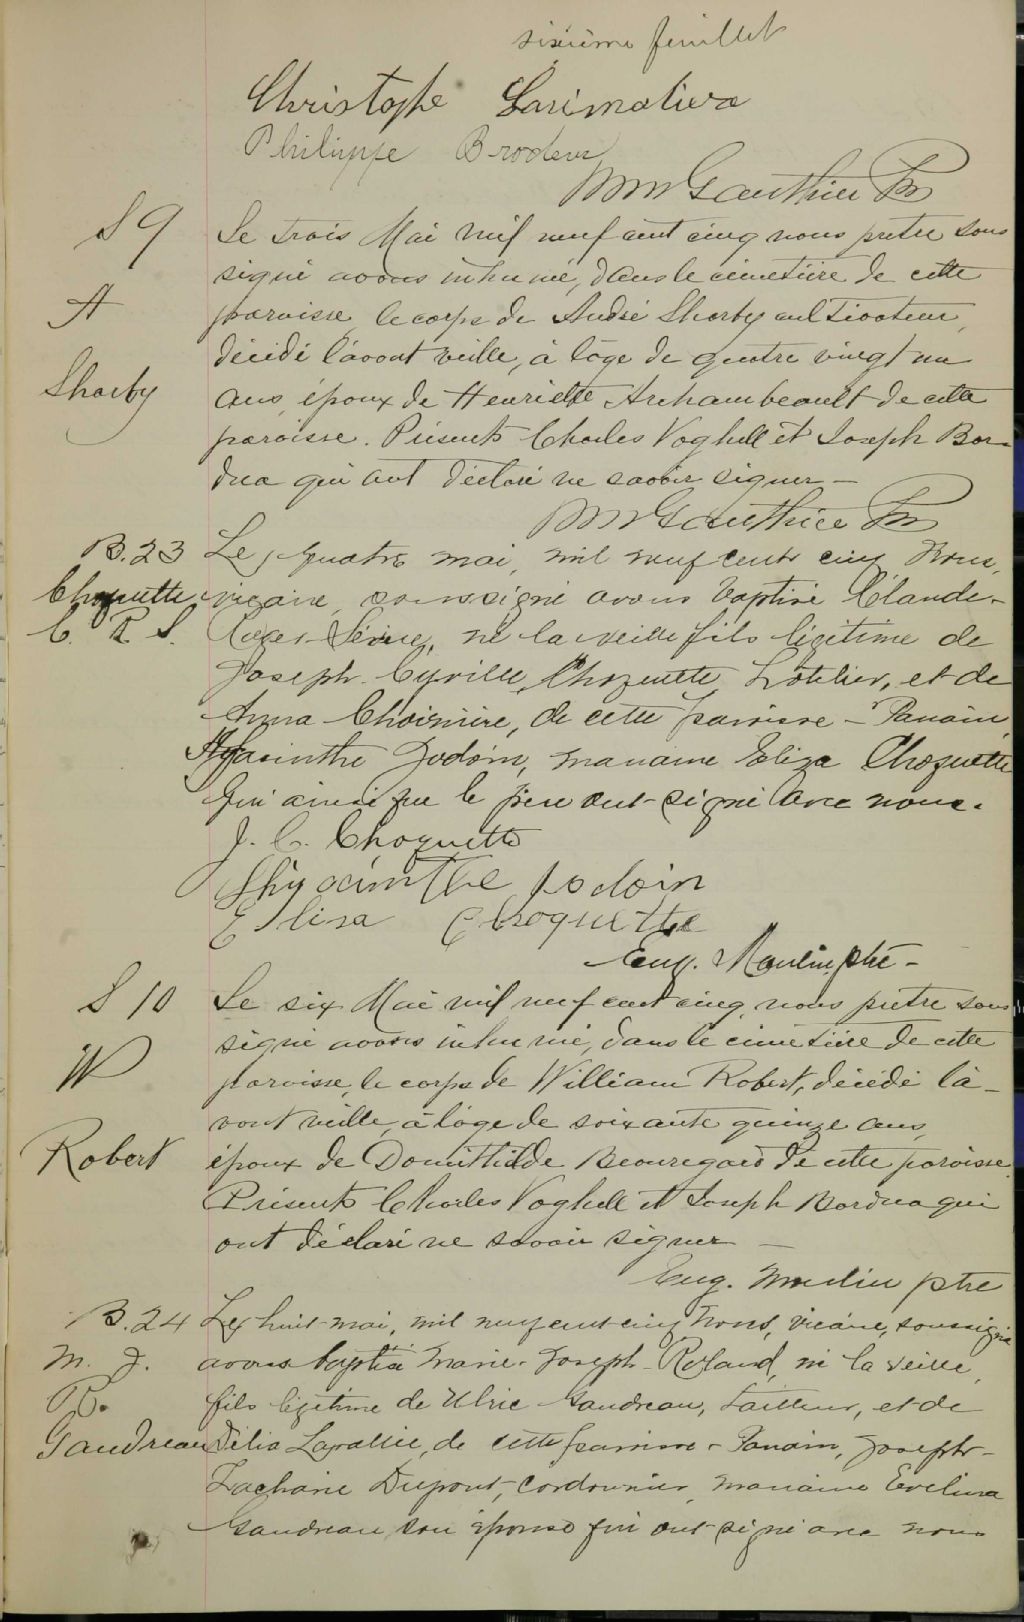 sixième feuillet
Christophe
Philippe Brodeur
Gauthier Ptr
S 9
A
Sharby
Le trois Mai mil neuf cent cinq nous prêtre sous
signé avons inhumé, dans le cimetière de cette
paroisse, le corps de André Sharby cultivateur,
décédé l'avant veille, à l'âge de quatre vingt un
ans, époux de Henriette Archambeault de cette
paroisse. Présents Charles Voghell et Joseph Bor-
dua qui ont déclaré ne savoir signer —
Gauthier Ptr
B. 23
Choquette
C. R. S.
Le quatre mai, mil neuf cent cinq Nous,
vicaire, soussigné avons baptisé Claude-
né la veille fils légitime de
Joseph-Cyrille Choquette, hôtelier, et de
Anna Choinière, de cette paroisse - Parrain,
Hyacinthe Jodoin, marraine Eliza Choquette
qui ainsi que le père ont signé avec nous.
J. C. Choquette
Hhyacinthe Jodoin
Elisa Choquette
Eug. Moulin, ptre -
S 10
W
Robert
Le six Mai mil neuf cent cinq, nous prêtre sous
signé avons inhumé, dans le cimetière de cette
paroisse, le corps de William Robert, décédé l'a-
vant veille, à l'âge de soixante quinze ans,
époux de Domithilde Beauregard de cette paroisse.
Présents Charles Voghell et Joseph Bordua qui
ont déclaré ne savoir signer —
Eug. Moulin ptre
B. 24
M. J.
R.
Gaudreau
Le huit mai, mil neuf cent cinq Nous, vicaire, soussigné
avons baptisé Marie-Joseph-Roland, né la veille,
fils légitime de Ulric Gaudreau, tailleur, et de
Délia Lavallée, de cette paroisse - Parrain, Joseph-
Zacharie Dupont, cordonnier, marraine Evelina
Gaudreau, son épouse qui ont signé avec nous